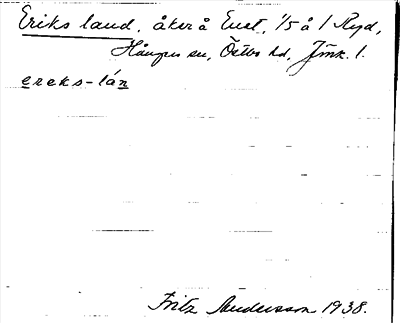 Eriks land, åker å Enet, 1/5 å 1 Ryd,
Hångers sn, Östbo hd, Jönk. l.
ereks-lán
Fritz Andersson 1938.